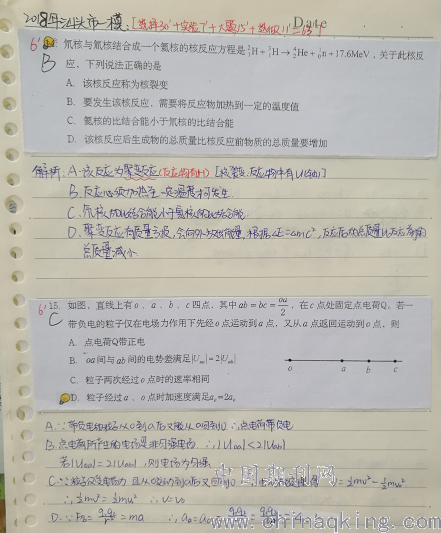 2018年汕头市一模:[选择30'+实验7'+大题15'+选做11'=63'] Date
6' 14. 氘核与氚核结合成一个氦核的核反应方程是²₁H+³₁H→⁴₂He+¹₀n+17.6MeV,关于此核反
B 应,下列说法正确的是
A. 该核反应称为核裂变
B. 要发生该核反应,需要将反应物加热到一定的温度值
C. 氦核的比结合能小于氘核的比结合能
D. 该核反应后生成物的总质量比核反应前物质的总质量要增加
解析:A.该反应为聚变反应(反应物有H) [核裂变:反应物中有U(铀)]
B.反应必须加热至一定温度才可发生
C.氘核的比结合能小于氦核的比结合能
D.聚变反应有质量亏损,会向外放出能量,根据△E=△mc²,反应后的总质量比反应前的
总质量减小
6' 15. 如图,直线上有o、a、b、c四点,其中ab=bc=oa/2,在c点处固定点电荷Q,若一
C 带负电的粒子仅在电场力作用下先经o点运动到a点,又从a点返回运动到o点,则
A. 点电荷Q带正电
B. oa间与ab间的电势差满足|Uoa|=2|Uab|
C. 粒子两次经过o点时的速率相同
D. 粒子经过a、o点时加速度满足aa=2ao
o a b c
A.∵带负电的粒子从o到a后又能从a回到o ∴点电荷带负电
B.点电荷所产生的电场是非匀强电场 ∴|Uoa|<2|Uab|
若|Uoa|=2|Uab|,则电场为匀强
C.∵粒子仅受电场力 且从o运动到a后又回到o
∴½mv²=½mv₀² ∴v=v₀
中国期刊网
www.chinaqking.com